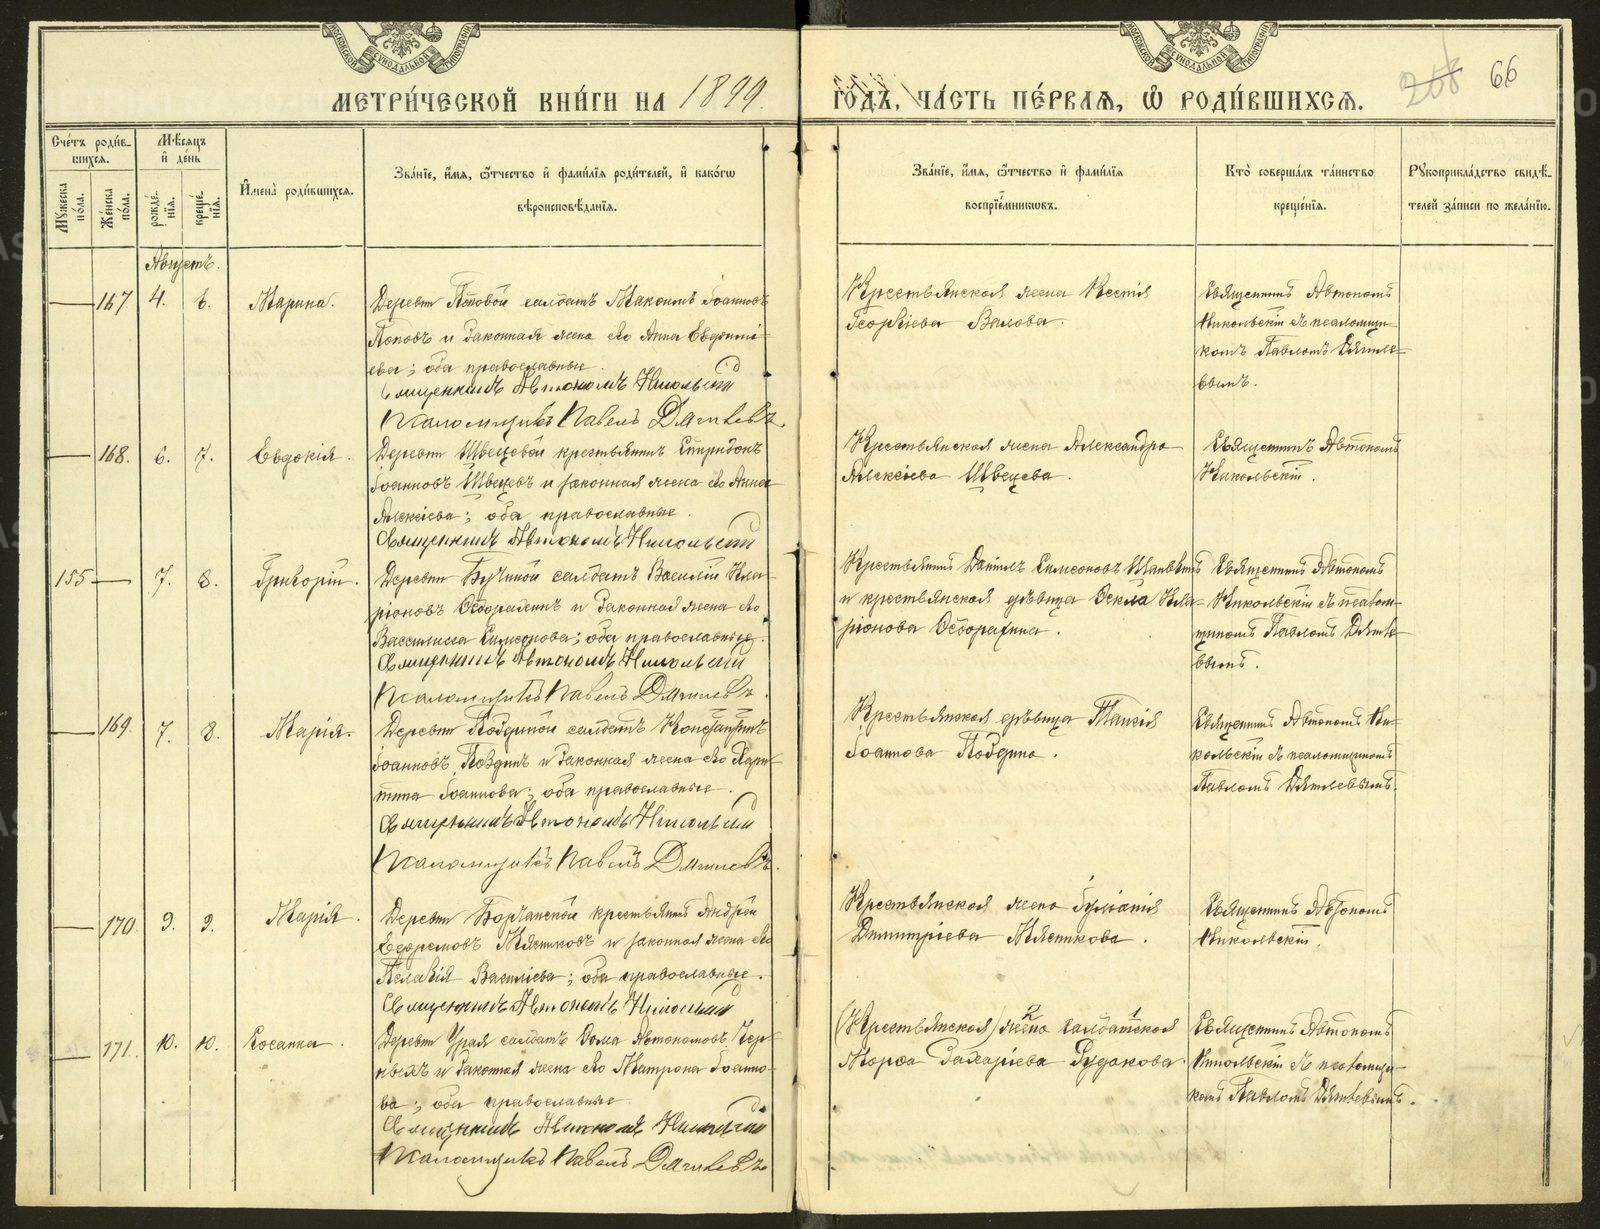 МЕТРИ́ЧЕСКОЙ КНИ́ГИ НА 1899.
ГО́ДЪ, ЧА́СТЬ ПЕ́РВАѦ, Ѽ РОДИ́ВШИХСѦ.
268 66
МОСКОВСКОЙ СѴНОДАЛЬНОЙ ТИПОГРАФІИ
МОСКОВСКОЙ СѴНОДАЛЬНОЙ ТИПОГРАФІИ
Сче́тъ роди́в-
шихсѧ.
Мꙋ́жеска по́ла.
Же́нска по́ла.
Мѣ́сѧцъ
и҆ де́нь
рожде́-
нїѧ.
креще́-
нїѧ.
И҆мена̀ роди́вшихсѧ.
Зва́нїе, и҆́мѧ, ѻ҆́тчество и҆ фами́лїѧ роди́телей, и҆ како́гѡ
вѣроисповѣ́данїѧ.
Зва́нїе, и҆́мѧ, ѻ҆́тчество и҆ фами́лїѧ
воспрїе́мникѡвъ.
Кто̀ соверша́лъ та́инство
креще́нїѧ.
Рꙋкоприкла́дство свидѣ́-
телей за́писи по жела́нїю.
Августъ.
167 4. 6. Марина.
Деревни Поповой солдатъ Максимъ Іоанновъ
Поповъ и законная жена его Анна Евдокимо-
ева; оба православные.
Священникъ Автономъ Никольскій
Псаломщикъ Павелъ Дягилевъ.
Крестьянская жена Ксенія
Георгіева Валова.
Священникъ Автономъ
Никольскій съ псаломщи-
комъ Павломъ Дягиле-
вымъ.
168. 6. 7. Евдокія.
Деревни Швецовой крестьянинъ Спиридонъ
Іоанновъ Швецовъ и законная жена его Анна
Алексіева; оба православные.
Священникъ Автономъ Никольскій
Крестьянская жена Александра
Алексіева Швецова.
Священникъ Автономъ
Никольскій.
155 7. 8. Григорій.
Деревни солдатъ Василій Ила-
ріоновъ и законная жена его
Василиса Симеонова; оба православные.
Священникъ Автономъ Никольскій
Псаломщикъ Павелъ Дягилевъ.
Крестьянинъ Даніилъ Симеоновъ
и крестьянская дѣвица Ѳекла Ила-
ріонова
Священникъ Автономъ
Никольскій съ псалом-
щикомъ Павломъ Дягиле-
вымъ.
169. 7. 8. Марія.
Деревни Поздиной солдатъ Константинъ
Іоанновъ Поздинъ и законная жена его Хари-
тина Іоаннова; оба православные.
Священникъ Автономъ Никольскій
Псаломщикъ Павелъ Дягилевъ.
Крестьянская дѣвица Таисія
Іоаннова Поздина.
Священникъ Автономъ Ни-
кольскій съ псаломщикомъ
Павломъ Дягилевымъ.
170 9. 9. Марія.
Деревни Борчанской крестьянинъ Андрей
Ефремовъ Мясниковъ и законная жена его
Пелагія Василіева; оба православные.
Священникъ Автономъ Никольскій
Крестьянская жена Іуліанія
Димитріева Мясникова.
Священникъ Автономъ
Никольскій.
171. 10. 10. Сосанна.
Деревни Урая солдатъ Ѳома Автономовъ Чер-
ныхъ и законная жена его Матрона Іоанно-
ва; оба православные.
Священникъ Автономъ Никольскій
Псаломщикъ Павелъ Дягилевъ
(Крестьянская) жена 2 солдатская 1
Марѳа Захаріева Рудакова.
Священникъ Автономъ
Никольскій съ псаломщи-
комъ Павломъ Дягилевымъ.